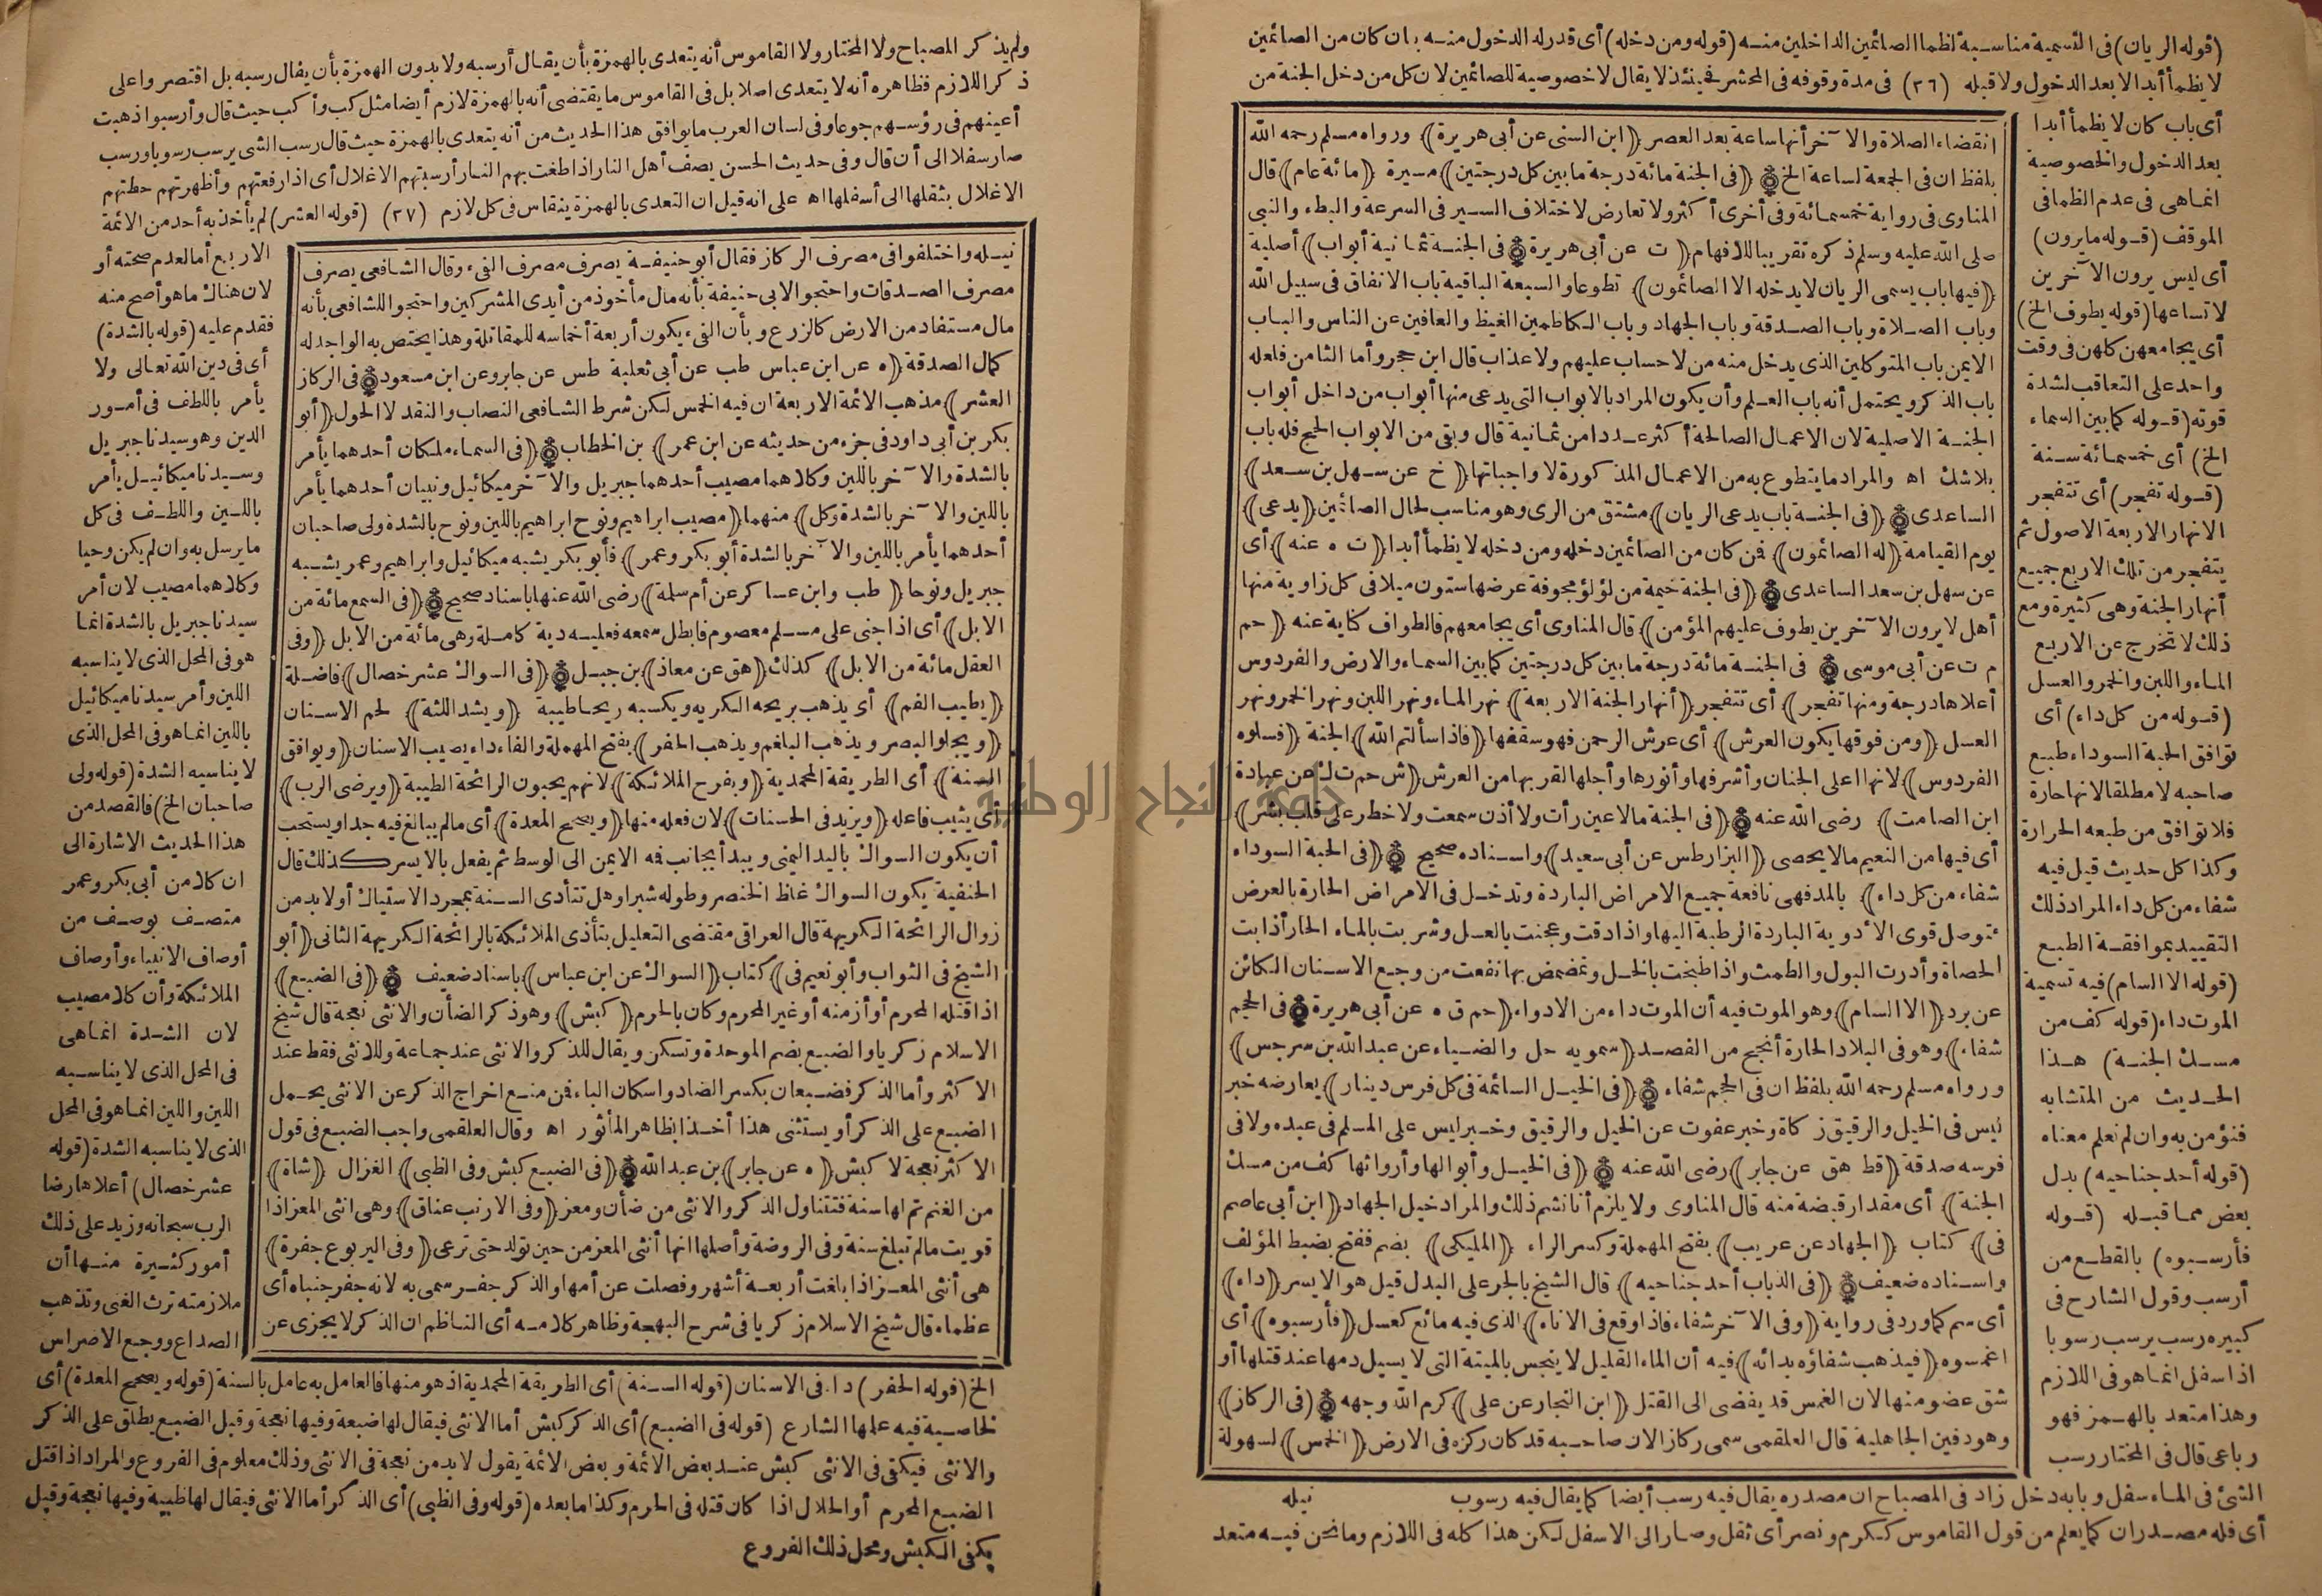 (قوله الريان) فى التسمية مناسبة لظما الصائمين الداخلين منه (قوله ومن دخله) أى قدر له الدخول منه بان كان من الصائمين
لا يظمأ أبدا لا بعد الدخول ولا قبله (٣٦) فى مدة وقوفه فى المحشر فحينئذ لا يقال لا خصوصية للصائمين لان كل من دخل الجنة من
أى باب كان لا يظمأ أبدا
بعد الدخول والخصوصية
انما هى فى عدم الظما فى
الموقف (قوله ما يرون)
أى ليس يرون الآخرين
لاتساعها (قوله يطوف الخ)
أى يجامعهن كلهن فى وقت
واحد على التعاقب لشدة
قوته (قوله كما بين السماء
الخ) أى خمسمائة سنة
(قوله تفجر) أى تتفجر
الانهار الاربعة الاصول ثم
يتفجر من تلك الاربع جميع
أنهار الجنة وهى كثيرة ومع
ذلك لا تخرج عن الاربع
الماء واللبن والخمر والعسل
(قوله من كل داء) أى
توافق الحبة السوداء طبع
صاحبه لا مطلقا لانها حارة
فلا توافق من طبعه الحرارة
وكذا كل حديث قيل فيه
شفاء من كل داء المراد ذلك
التقييد بموافقة الطبع
(قوله الا السام) فيه تسمية
الموت داء (قوله كف من
مسك الجنة) هذا
الحديث من المتشابه
فنؤمن به وان لم نعلم معناه
(قوله أحد جناحيه) بدل
بعض مما قبله (قوله
فأرسبوه) بالقطع من
أرسب وقول الشارح فى
كبيره رسب يرسب رسوبا
اذا سفل انما هو فى اللازم
وهذا متعد بالهمز فهو
رباعى قال فى المختار رسب
انقضاء الصلاة والآخر أنها ساعة بعد العصر ﴿ابن السنى عن أبى هريرة﴾ ورواه مسلم رحمه الله
بلفظ ان فى الجمعة لساعة الخ ﴿فى الجنة مائة درجة ما بين كل درجتين﴾ مسيرة ﴿مائة عام﴾ قال
المناوى فى رواية خمسمائة وفى أخرى أكثر ولا تعارض لاختلاف السير فى السرعة والبطء والنبى
صلى الله عليه وسلم ذكره تقريبا للافهام ﴿ت عن أبى هريرة فى الجنة ثمانية أبواب﴾ أصلية
﴿فيها باب يسمى الريان لا يدخله الا الصائمون﴾ تطوعا والسبعة الباقية باب الانفاق فى سبيل الله
وباب الصلاة وباب الصدقة وباب الجهاد وباب الكاظمين الغيظ والعافين عن الناس والباب
الايمن باب المتوكلين الذى يدخل منه من لا حساب عليهم ولا عذاب قال ابن حجر وأما الثامن فلعله
باب الذكر ويحتمل أنه باب العلم وأن يكون المراد بالابواب التى يدعى منها أبواب من داخل أبواب
الجنة الاصلية لان الاعمال الصالحة أكثر عددا من ثمانية قال وبقى من الابواب الحج فله باب
بلاشك اه والمراد ما يتطوع به من الاعمال المذكورة لا واجباتها ﴿خ عن سهل بن سعد﴾
الساعدى ﴿فى الجنة باب يدعى الريان﴾ مشتق من الرى وهو مناسب لحال الصائمين ﴿يدعى﴾
يوم القيامة ﴿له الصائمون﴾ فمن كان من الصائمين دخله ومن دخله لا يظمأ أبدا ﴿ت ه عنه﴾ أى
عن سهل بن سعد الساعدى ﴿فى الجنة خيمة من لؤلؤ مجوفة عرضها ستون ميلا فى كل زاوية منها
أهل لا يرون الآخرين يطوف عليهم المؤمن﴾ قال المناوى أى يجامعهم فالطواف كناية عنه ﴿حم
م ت عن أبى موسى فى الجنة مائة درجة ما بين كل درجتين كما بين السماء والارض والفردوس
أعلاها درجة ومنها تفجر﴾ أى تتفجر ﴿أنهار الجنة الاربعة﴾ نهر الماء ونهر اللبن ونهر الخمر ونهر
العسل ﴿ومن فوقها يكون العرش﴾ أى عرش الرحمن فهو سقفها ﴿فاذا سألتم الله﴾ الجنة ﴿فسلوه
الفردوس﴾ لانها اعلى الجنان وأشرفها وأنورها وأجلها لقربها من العرش ﴿ش حم ت ك عن عبادة
ابن الصامت﴾ رضى الله عنه ﴿فى الجنة ما لا عين رأت ولا أذن سمعت ولا خطر على قلب بشر﴾
أى فيها من النعيم ما لا يحصى ﴿البزار طس عن أبى سعيد﴾ واسناده صحيح ﴿فى الحبة السوداء
شفاء من كل داء﴾ بالمد فهى نافعة جميع الامراض الباردة وتدخل فى الامراض الحارة بالعرض
فتوصل قوى الأدوية الباردة الرطبة اليها واذا دقت وعجنت بالعسل وشربت بالماء الحار أذابت
الحصاة وأدرت البول والطمث واذا طبخت بالخل وتمضمض بها نفعت من وجع الاسنان الكائن
عن برد ﴿الا السام﴾ وهو الموت فيه أن الموت داء من الادواء ﴿حم ق ه عن أبى هريرة فى الحجم
شفاء﴾ وهو فى البلاد الحارة أنجح من الفصد ﴿سمويه حل والضياء عن عبد الله بن سرجس﴾
ورواه مسلم رحمه الله بلفظ ان فى الحجم شفاء ﴿فى الخيل السائمة فى كل فرس دينار﴾ يعارضه خبر
ليس فى الخيل والرقيق زكاة وخبر عفوت عن الخيل والرقيق وخبر ليس على المسلم فى عبده ولا فى
فرسه صدقة ﴿قط هق عن جابر﴾ رضى الله عنه ﴿فى الخيل وأبوالها وأرواثها كف من مسك
الجنة﴾ أى مقدار قبضة منه قال المناوى ولا يلزم أنا نشم ذلك والمراد خيل الجهاد ﴿ابن أبى عاصم
فى﴾ كتاب ﴿الجهاد عن عريب﴾ بفتح المهملة وكسر الراء ﴿المليكى﴾ بضم ففتح بضبط المؤلف
واسناده ضعيف ﴿فى الذباب أحد جناحيه﴾ قال الشيخ بالجر على البدل قيل هو الايسر ﴿داء﴾
أى سم كما ورد فى رواية ﴿وفى الآخر شفاء فاذا وقع فى الاناء﴾ الذى فيه مائع كعسل ﴿فأرسبوه﴾ أى
اغمسوه ﴿فيذهب شفاؤه بدائه﴾ فيه أن الماء القليل لا ينجس بالميتة التى لا يسيل دمها عند قتلها أو
شق عضو منها لان الغمس قد يفضى الى القتل ﴿ابن النجار عن على﴾ كرم الله وجهه ﴿فى الركاز﴾
وهو دفين الجاهلية قال العلقمى سمى ركازا لان صاحبه قد كان ركزه فى الارض ﴿الخمس﴾ لسهولة
نيله
الشئ فى الماء سفل وبابه دخل زاد فى المصباح ان مصدره يقال فيه رسب أيضا كما يقال فيه رسوب
أى فله مصدران كما يعلم من قول القاموس ككرم ونصر أى ثقل وصار الى الاسفل لكن هذا كله فى اللازم وما نحن فيه متعد
ولم يذكر المصباح ولا المختار ولا القاموس أنه يتعدى بالهمزة بأن يقال أرسبه ولا بدون الهمزة بأن يقال رسبه بل اقتصروا على
ذكر اللازم فظاهره أنه لا يتعدى اصلا بل فى القاموس ما يقتضى أنه بالهمزة لازم أيضا مثل كب وأكب حيث قال وأرسبوا ذهبت
أعينهم فى رؤسهم جوعا وفى لسان العرب ما يوافق هذا الحديث من أنه يتعدى بالهمزة حيث قال رسب الشى يرسب رسوبا ورسب
صار سفلا الى أن قال وفى حديث الحسن يصف أهل النار اذا طغت بهم النار أرسبتهم الاغلال أى اذا رفعتهم وأظهرتهم حطتهم
الاغلال بثقلها الى أسفلها اه على انه قيل ان التعدى بالهمزة ينقاس فى كل لازم (٣٧) (قوله العشر) لم يأخذ به أحد من الائمة
الاربع أما لعدم صحته أو
لان هناك ما هو أصح منه
فقدم عليه (قوله بالشدة)
أى فى دين الله تعالى ولا
يأمر باللطف فى أمور
الدين وهو سيدنا جبريل
وسيدنا ميكائيل يأمر
باللين واللطف فى كل
ما يرسل به وان لم يكن وحيا
وكلاهما مصيب لان أمر
سيدنا جبريل بالشدة انما
هو فى المحل الذى لا يناسبه
اللين وأمر سيدنا ميكائيل
باللين انما هو فى المحل الذى
لا يناسبه الشدة (قوله ولى
صاحبان الخ) فالقصد من
هذا الحديث الاشارة الى
ان كلا من أبى بكر وعمر
متصف بوصف من
أوصاف الانبياء وأوصاف
الملائكة وأن كلا مصيب
لان الشدة انما هى
فى المحل الذى لا يناسبه
اللين واللين انما هو فى المحل
الذى لا يناسبه الشدة (قوله
عشر خصال) أعلاها رضا
الرب سبحانه وزيد على ذلك
أمور كثيرة منها أن
ملازمته ترث الغنى وتذهب
الصداع ووجع الاضراس
نيله واختلفوا فى مصرف الركاز فقال أبو حنيفة يصرف مصرف الفىء وقال الشافعى يصرف
مصرف الصدقات واحتجوا لابى حنيفة بأنه مال مأخوذ من أيدى المشركين واحتجوا للشافعى بأنه
مال مستفاد من الارض كالزرع وبأن الفىء يكون أربعة أخماسه للمقاتلة وهذا يختص به الواجد له
كمال الصدقة ﴿ه عن ابن عباس طب عن أبى ثعلبة طس عن جابر وعن ابن مسعود فى الركاز
العشر﴾ مذهب الائمة الاربعة ان فيه الخمس لكن شرط الشافعى النصاب والنقد لا الحول ﴿أبو
بكر بن أبى داود فى جزء من حديثه عن ابن عمر﴾ بن الخطاب ﴿فى السماء ملكان أحدهما يأمر
بالشدة والآخر باللين وكلاهما مصيب أحدهما جبريل والآخر ميكائيل ونبيان أحدهما يأمر
باللين والآخر بالشدة وكل﴾ منهما ﴿مصيب ابراهيم ونوح ابراهيم باللين ونوح بالشدة ولى صاحبان
أحدهما يأمر باللين والآخر بالشدة أبو بكر وعمر﴾ فأبو بكر يشبه ميكائيل وابراهيم وعمر يشبه
جبريل ونوحا ﴿طب وابن عساكر عن أم سلمة﴾ رضى الله عنها باسناد صحيح ﴿فى السمع مائة من
الابل﴾ أى اذا جنى على مسلم معصوم فابطل سمعه فعليه دية كاملة وهى مائة من الابل ﴿وفى
العقل مائة من الابل﴾ كذلك ﴿هق عن معاذ﴾ بن جبل ﴿فى السواك عشر خصال﴾ فاضلة
﴿يطيب الفم﴾ أى يذهب بريحه الكريه ويكسبه ريحا طيبة ﴿ويشد اللثة﴾ لحم الاسنان
﴿ويجلو البصر ويذهب البلغم ويذهب الحفر﴾ بفتح المهملة والفاء داء يصيب الاسنان ﴿ويوافق
السنة﴾ أى الطريقة المحمدية ﴿ويفرح الملائكة﴾ لانهم يحبون الرائحة الطيبة ﴿ويرضى الرب﴾
أى يثيب فاعله ﴿ويزيد فى الحسنات﴾ لان فعله منها ﴿ويصحح المعدة﴾ أى ما لم يبالغ فيه جدا ويستحب
أن يكون السواك باليد اليمنى ويبدأ بجانب فمه الايمن الى الوسط ثم يفعل بالايسر كذلك قال
الحنفية يكون السواك غلظ الخنصر وطوله شبرا وهل تتأدى السنة بمجرد الاستياك أو لابد من
زوال الرائحة الكريهة قال العراقى مقتضى التعليل بتأذى الملائكة بالرائحة الكريهة الثانى ﴿أبو
الشيخ فى الثواب وأبو نعيم فى﴾ كتاب ﴿السواك عن ابن عباس﴾ باسناد ضعيف ﴿فى الضبع﴾
اذا قتله المحرم أو أزمنه أو غير المحرم وكان بالحرم ﴿كبش﴾ وهو ذكر الضأن والانثى نعجة قال شيخ
الاسلام زكريا والضبع بضم الموحدة وتسكن ويقال للذكر والانثى عند جماعة وللانثى فقط عند
الاكثر وأما الذكر فضبعان بكسر الضاد واسكان الباء فمن منع اخراج الذكر عن الانثى يحمل
الضبع على الذكر أو يستثنى هذا أخذا بظاهر المأثور اه وقال العلقمى واجب الضبع فى قول
الاكثر نعجة لا كبش ﴿ه عن جابر﴾ بن عبد الله ﴿فى الضبع كبش وفى الظبى﴾ الغزال ﴿شاة﴾
من الغنم تم لها سنة فتتناول الذكر والانثى من ضأن ومعز ﴿وفى الارنب عناق﴾ وهى انثى المعز اذا
قويت ما لم تبلغ سنة وفى الروضة وأصلها انها أنثى المعز من حين تولد حتى ترعى ﴿وفى اليربوع جفرة﴾
هى أنثى المعز اذا بلغت أربعة أشهر وفصلت عن أمها والذكر جفر سمى به لانه جفر جنباه أى
عظما، قال شيخ الاسلام زكريا فى شرح البهجة وظاهر كلامه أى الناظم ان الذكر لا يجزى عن
الخ (قوله الحفر) داء فى الاسنان (قوله السنة) أى الطريقة المحمدية اذ هو منها فالعامل به عامل بالسنة (قوله ويصحح المعدة) أى
لخاصية فيه علمها الشارع (قوله فى الضبع) أى الذكر كبش أما الانثى فيقال لها ضبعة وفيها نعجة وقيل الضبع يطلق على الذكر
والانثى فيكفى فى الانثى كبش عند بعض الائمة وبعض الائمة يقول لابد من نعجة فى الانثى وذلك معلوم فى الفروع والمراد اذا قتل
الضبع المحرم أو الحلال اذا كان قتله فى الحرم وكذا ما بعده (قوله وفى الظبى) أى الذكر أما الانثى فيقال لها ظبية وفيها نعجة وقيل
يكفى الكبش ومحل ذلك الفروع
جامعة النجاح الوطنية